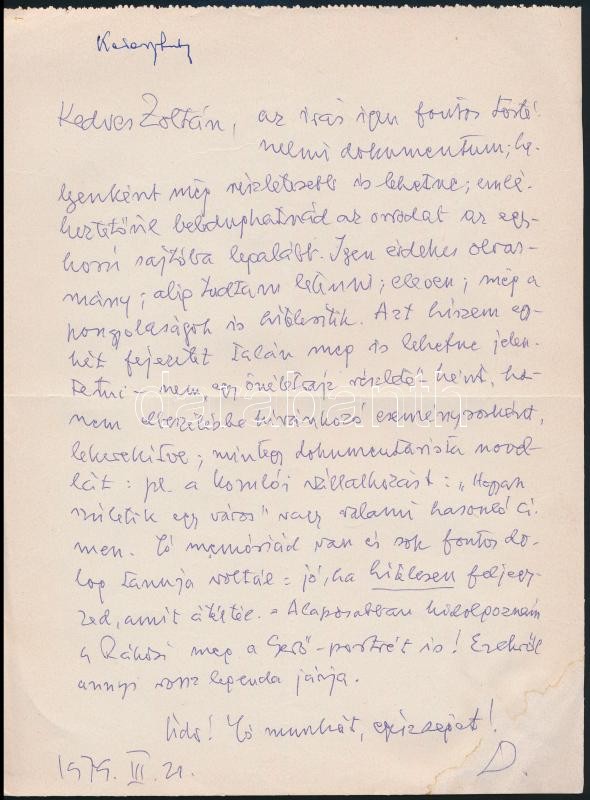 Kedves Zoltán, az irás igen fontos törté-
nelmi dokumentum; he-
lyenként még részletesebb is lehetne; emlé-
keztetőül beledughatnád az orrodat az egy-
korú sajtóba legalább. Igen érdekes olvas-
mány; alig tudtam letenni; eleven; még a
pongyolaságok is hitelesitik. Azt hiszem egy-
két fejezetet talán meg is lehetne jelen-
tetni – nem, egy önéletrajz részlete-ként, ha-
nem elbeszélésbe kivánkozó eseménysorként,
lekerekitve; mintegy dokumentarista novel-
lát: pl. a komlói vállalkozást: „Hogyan
születik egy város" vagy valami hasonló ci-
men. Jó memóriád van és sok fontos do-
log tanuja voltál = jó, ha hitelesen feljegy-
zed, amit átéltél. = Alaposabban kidolgoznám
a Rákosi meg a Gerő-portrét is! Ezekről
annyi rossz legenda járja.
Üdv! Jó munkát, egészséget!
1979. III. 21. D.
darabanth